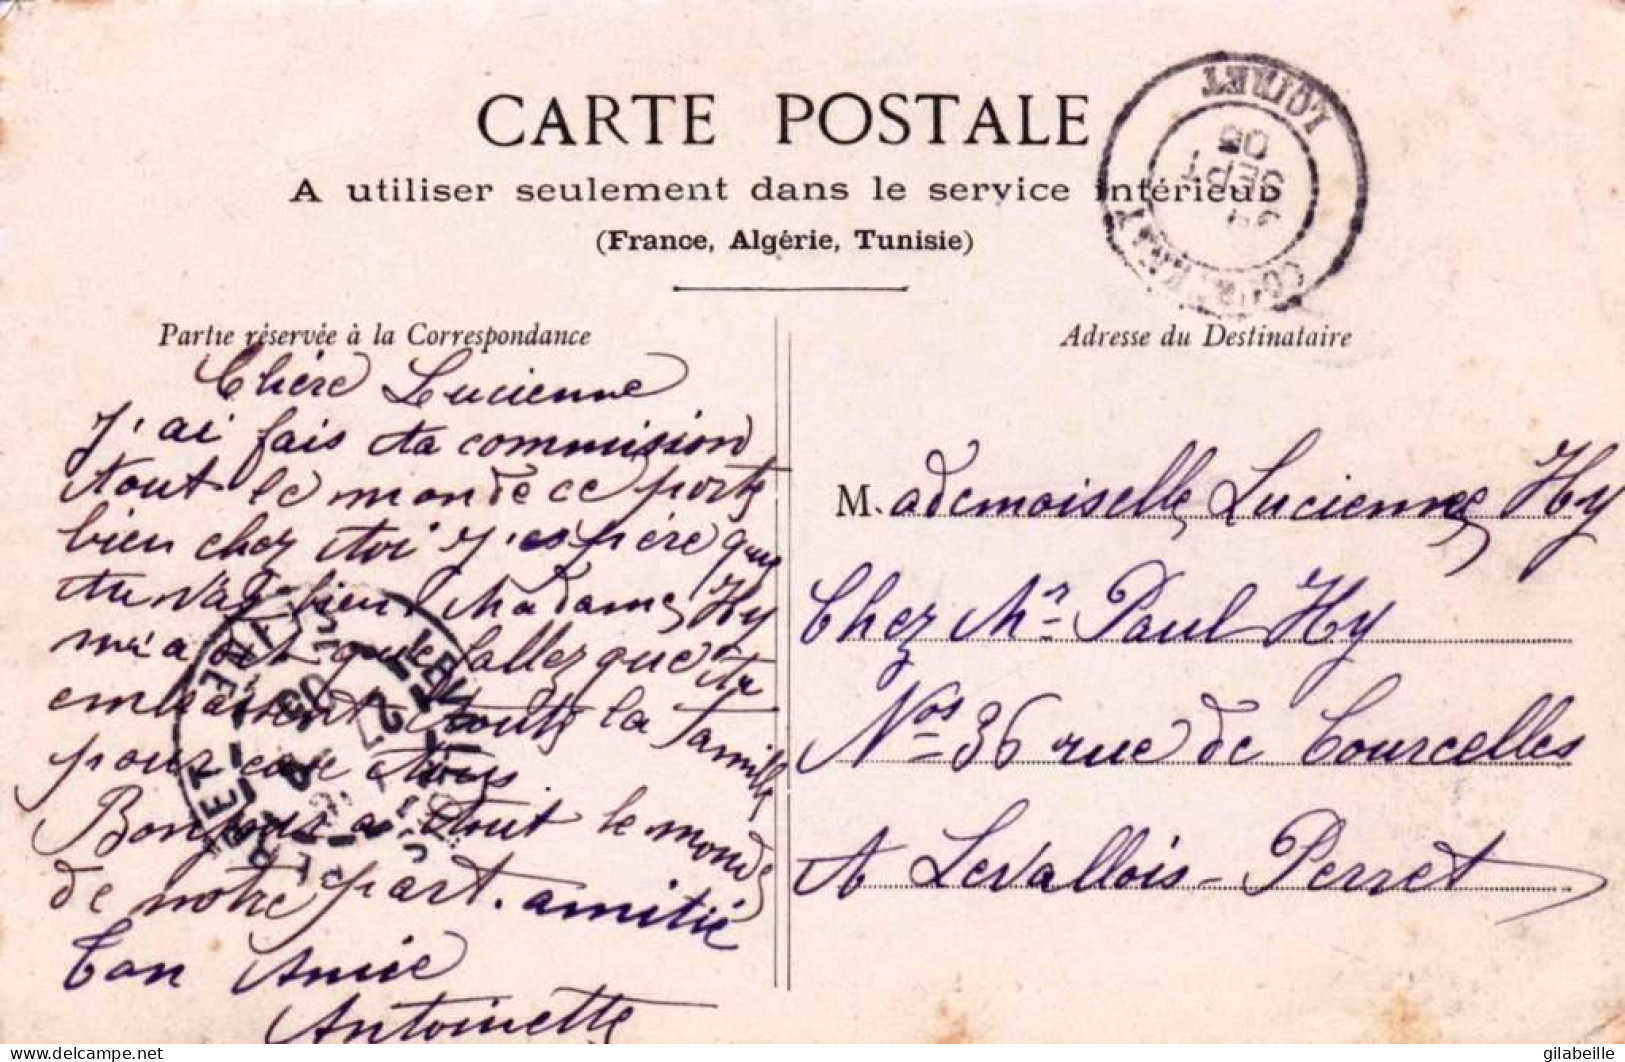 CARTE POSTALE
A utiliser seulement dans le service intérieur
(France, Algérie, Tunisie)
LOIRET
05
SEPT
24
Partie réservée à la Correspondance
Chére Lucienne
J'ai fais ta commision
tout le monde ce porte
bien chez toi J'espére que
tu vas bien Madame Hy
m'a dit que fallez que tu
embrassent toute la famille
pour eux tous
Bonjour a tout le monde
de notre part. amitié
Ton Amie
Antoinette
Adresse du Destinataire
M. ademoiselle Lucienne Hy
Chez Mr Paul Hy
Nos 36 rue de Courcelles
A Levallois-Perret
delcampe.net
gilabeille